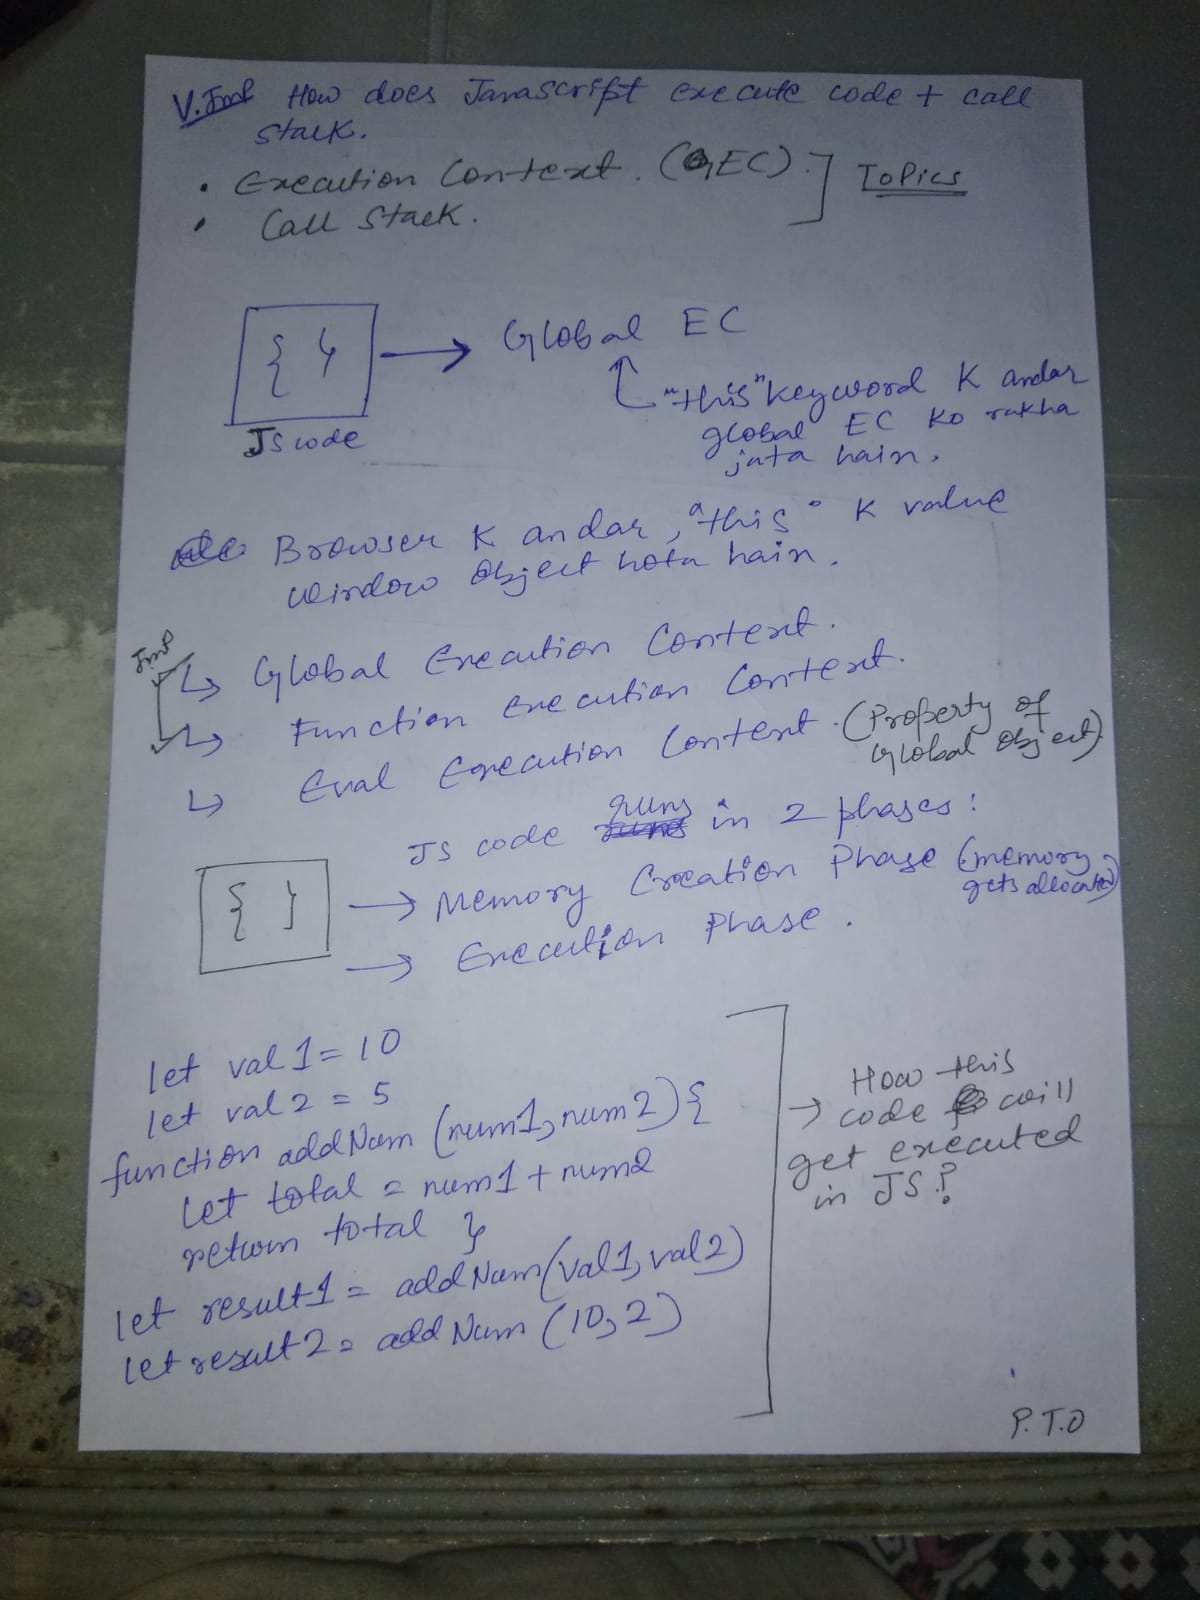 V.Imp How does Javascript execute code + call
stack.
• Execution Context. (GEC).
• Call Stack.
Topics
{ }
JS code
Global EC
"this" keyword K andar
global EC ko rakha
jata hain.
Browser K andar, "this" K value
window object hota hain.
Imp
↳ Global Execution Context.
↳ Function Execution Context.
↳ Eval Execution Context. (Property of
Global Object)
JS code runs in 2 phases:
{ }
→ Memory Creation Phase (memory
gets allocated)
→ Execution Phase.
let val1 = 10
let val2 = 5
function addNum (num1, num2) {
let total = num1 + num2
return total }
let result1 = addNum (val1, val2)
let result2 = addNum (10, 2)
→ How this
code will
get executed
in JS?
P.T.O